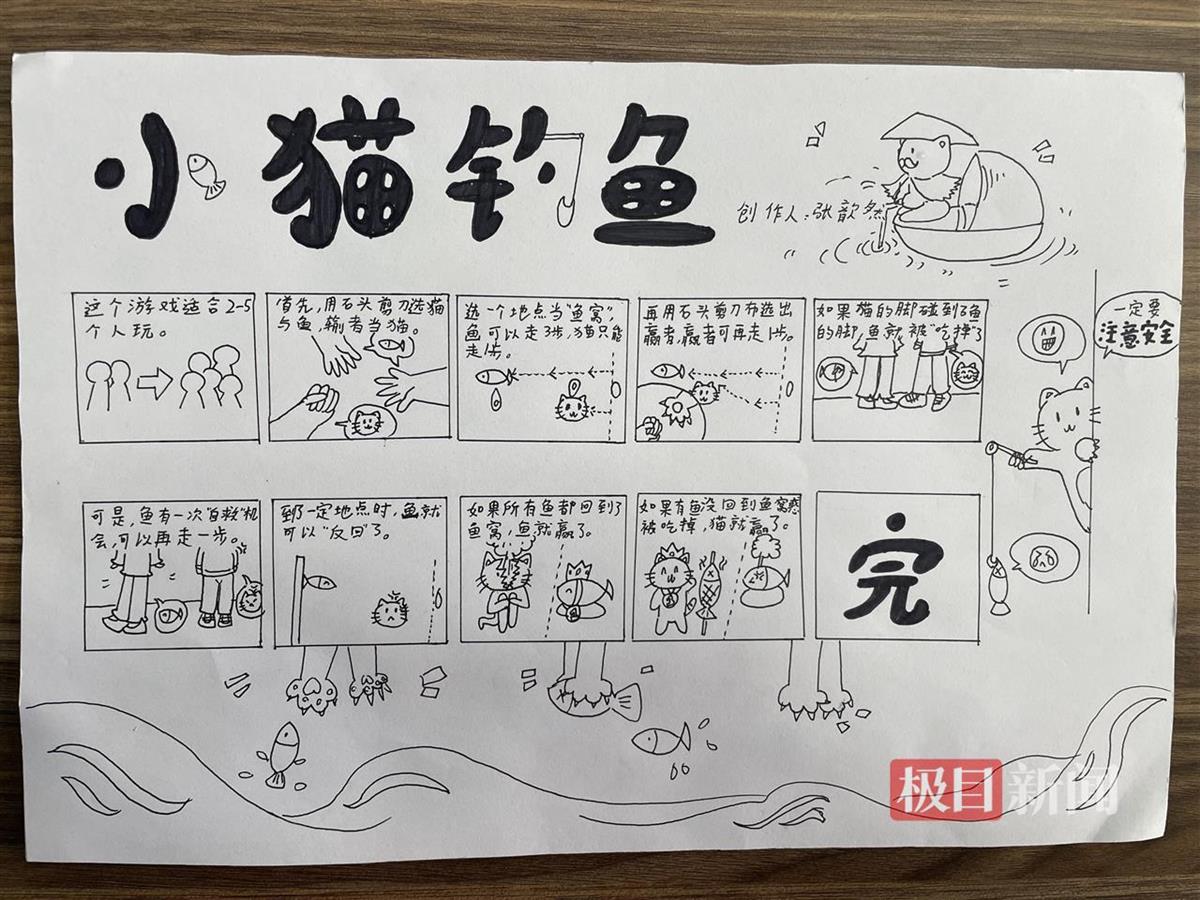 小猫钓鱼
创作人:张歆然
这个游戏适合2-5
个人玩。
首先,用石头剪刀选猫
与鱼,输者当猫。
选一个地点当"鱼窝",
鱼可以走3步,猫只能
走1步。
再用石头剪刀布选出
赢者,赢者可再走1步。
如果猫的脚碰到了鱼
的脚,鱼就被"吃掉"了
一定要
注意安全
可是,鱼有一次"自救"机
会,可以再走一步。
到了一定地点时,鱼就
可以"反回"了。
如果所有鱼都回到了
鱼窝,鱼就赢了。
如果有鱼没回到鱼窝
被吃掉,猫就赢了。
完
极目新闻